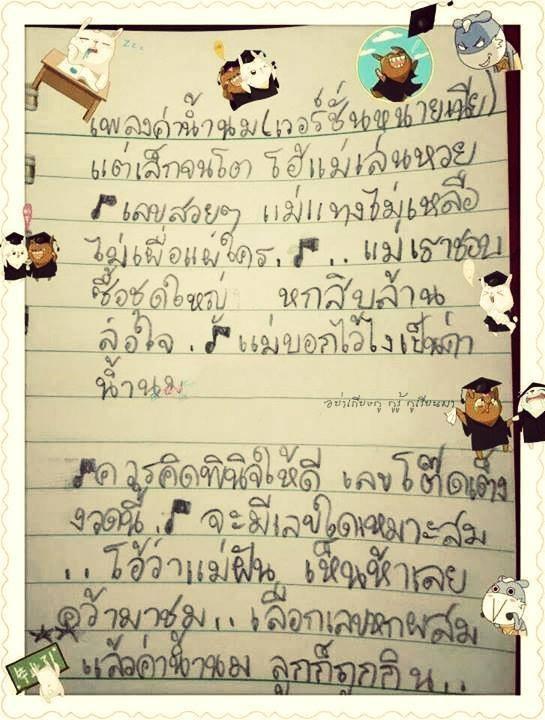 zzz
เพลงค่าน้ำนม(เวอร์ชั่นหนายเนีย)
แต่เล็กจนโต โอ้แม่เล่นหวย
♪เลขสวยๆ แม่แทงไม่เหลือ
ไม่เผื่อแผ่ใคร.♪.. แม่เราชอบ
ซื้อชุดใหญ่ หกสิบล้าน
ล่อใจ.♪แม่บอกไว้ไงเป็นค่า
น้ำนม
อย่าเถียงกู กูรู้ กูเรียนมา
♪ควรคิดพินิจให้ดี เลขโต๊ดเต็ง
งวดนี้.♪ จะมีเลขใดเหมาะสม
..โอ้ว่าแม่ฝัน เห็นห้าเลย
คว้ามาชม..เลือกเลขหกผสม
แล้วค่าน้ำนม ลูกก็ถูกกิน..